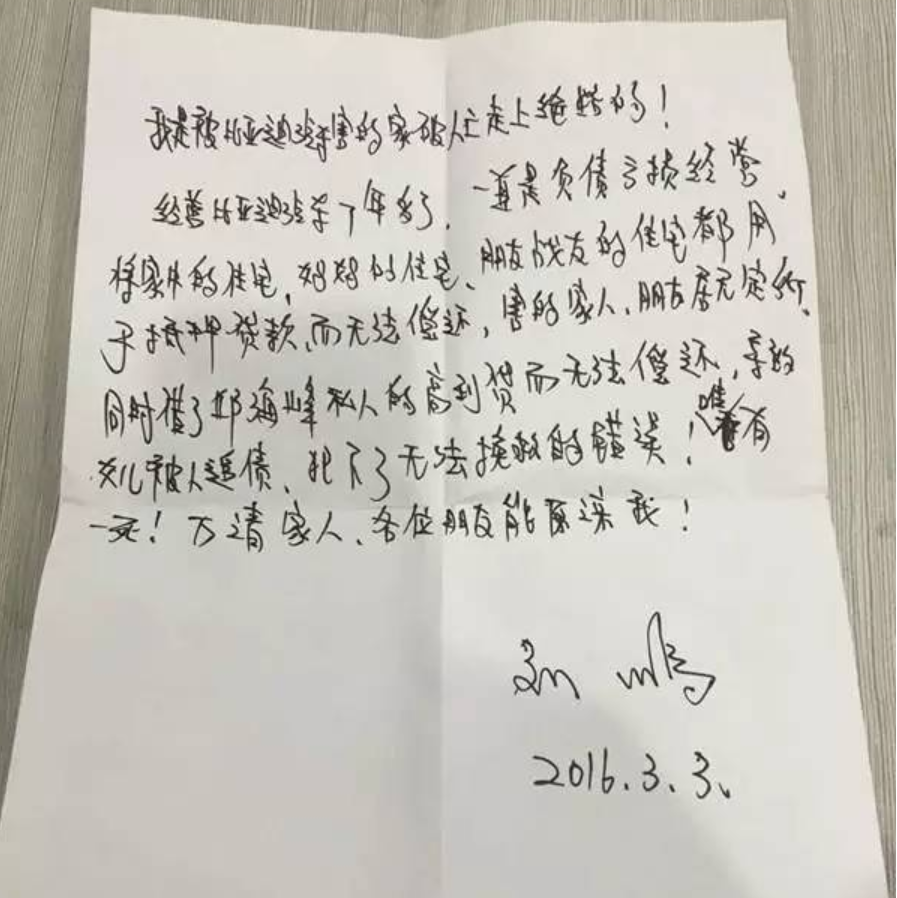 我是被比亚迪汽车害的家破人亡走上绝路的！
经营比亚迪汽车了年多了，一直是负债亏损经营、
将家中的住宅、妈妈的住宅、朋友战友的住宅都用
于抵押贷款、而无法偿还，害的家人、朋友居无定所、
同时借了 海峰私人的高利贷而无法偿还，导致
女儿被人追债、犯下了无法挽救的错误！唯有
一死！万请家人、各位朋友能原谅我！
2016.3.3、